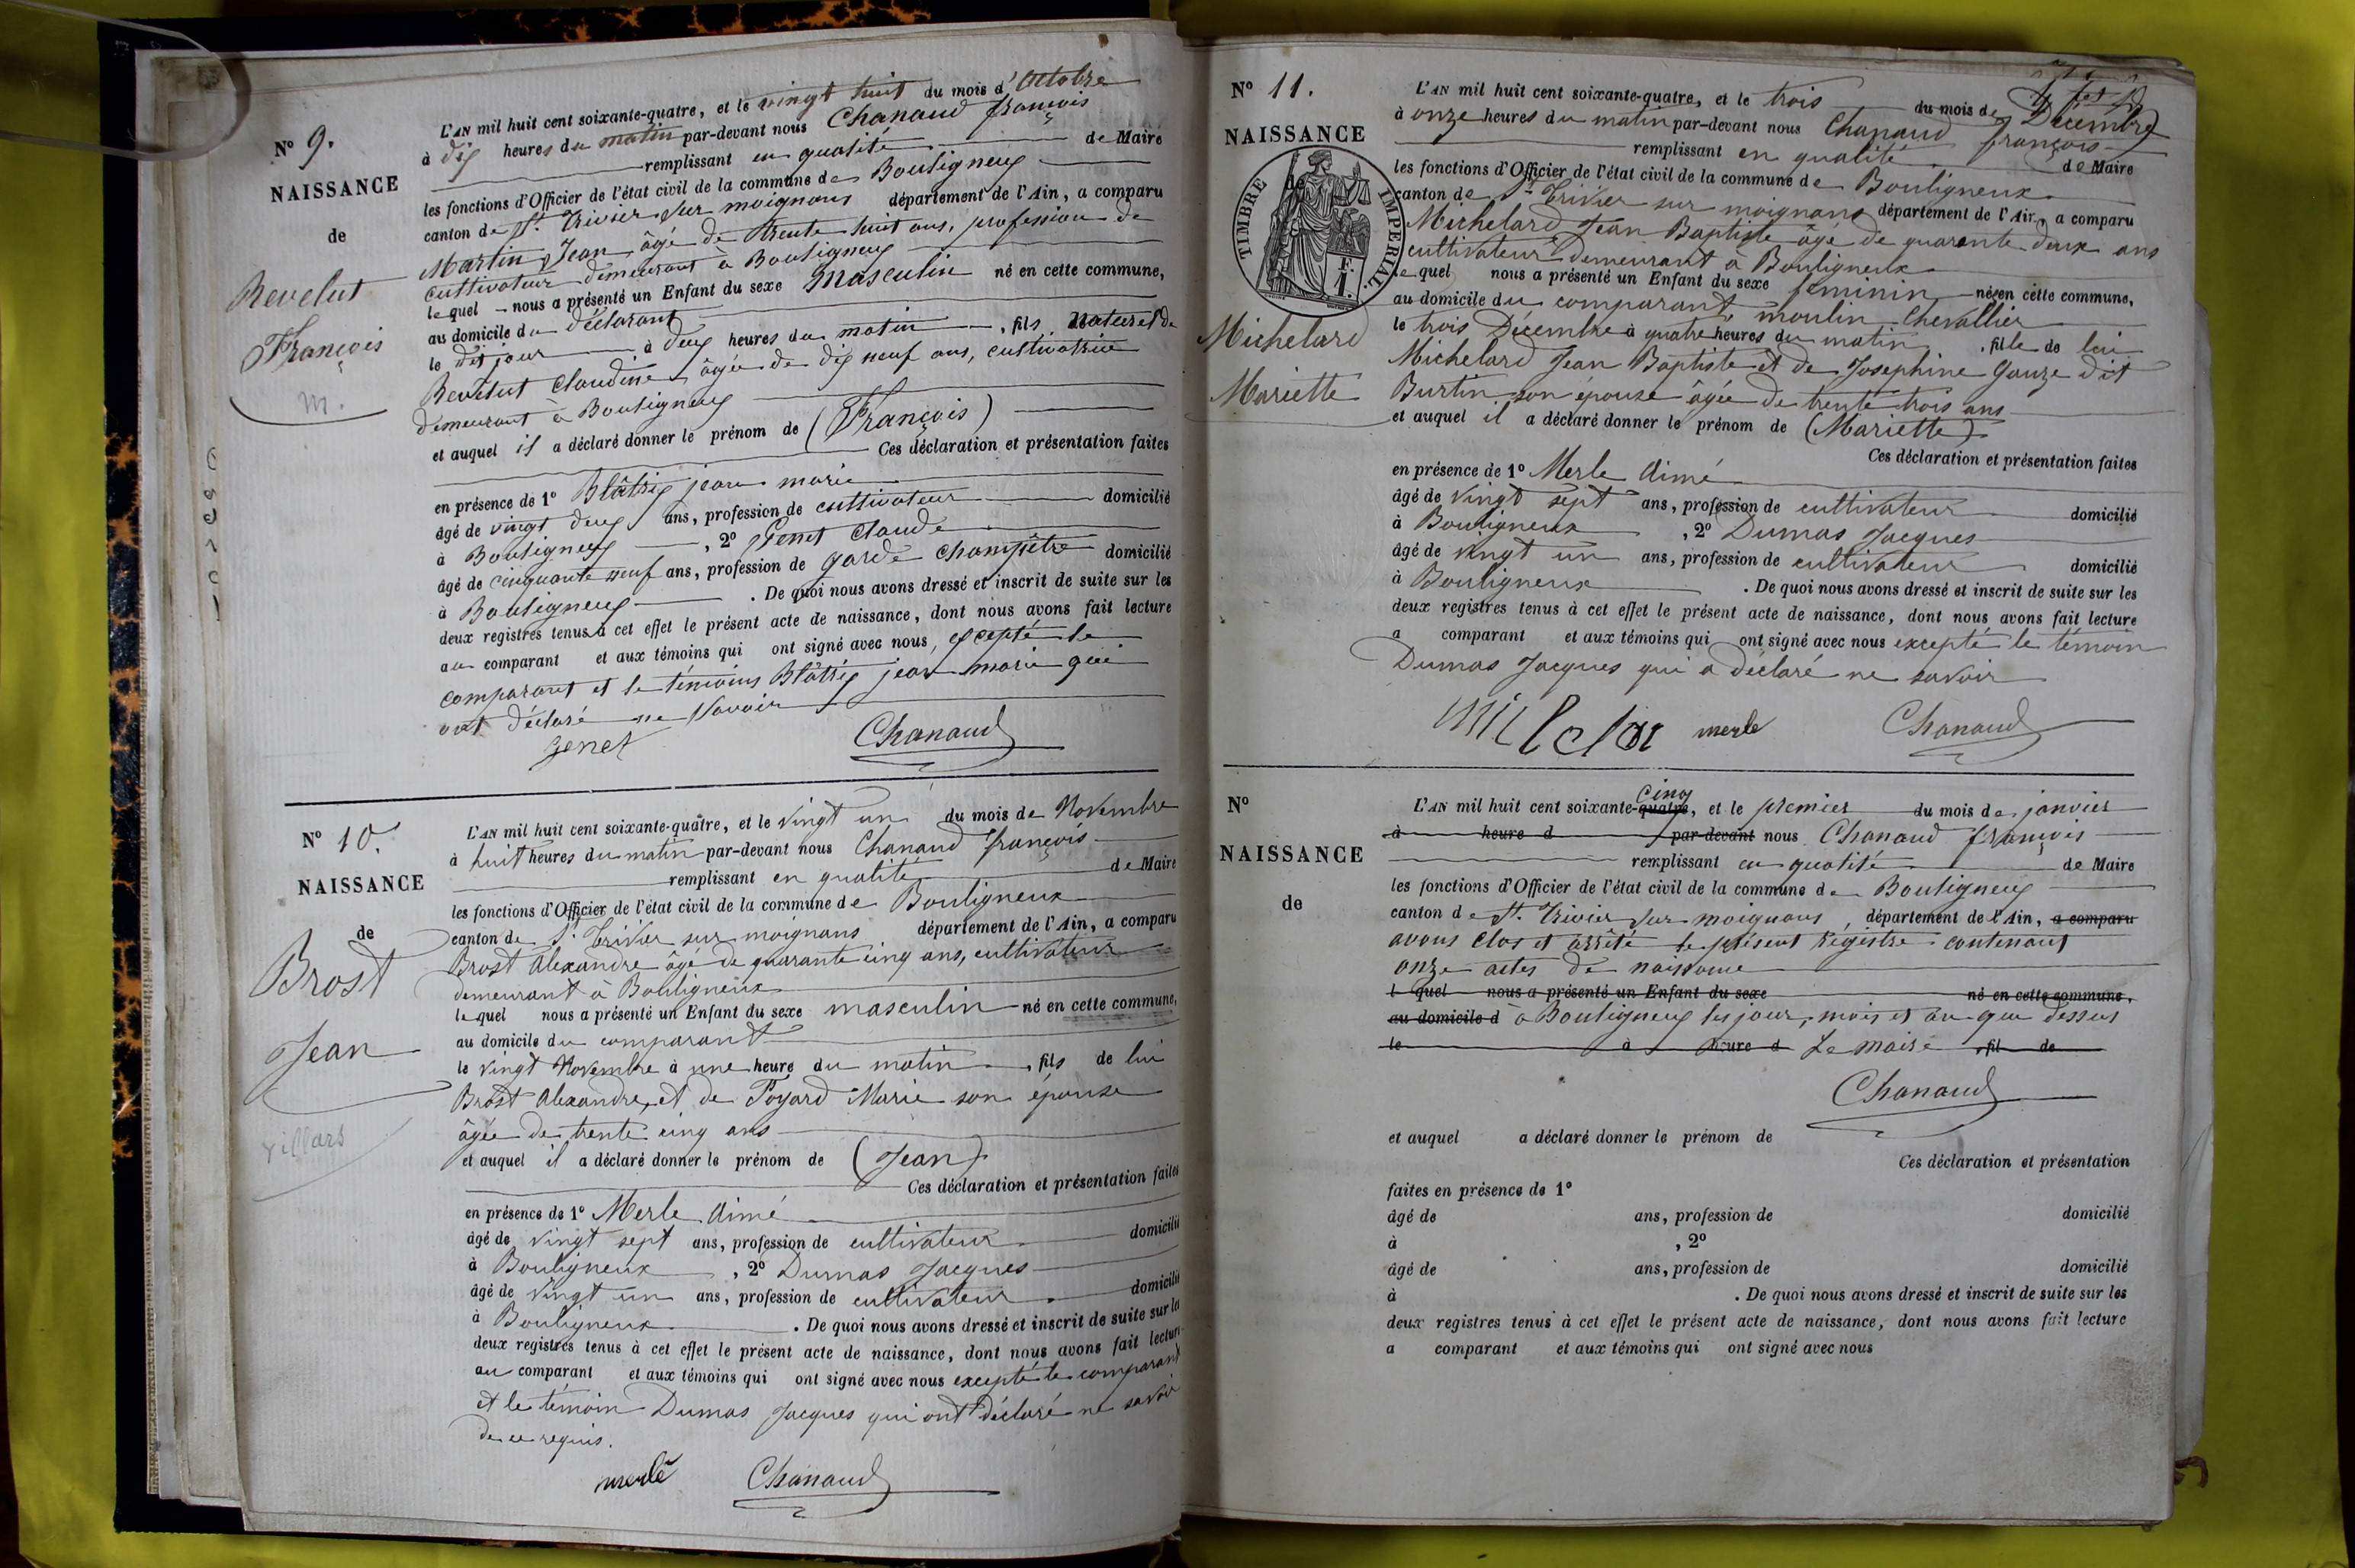 N° 9.
NAISSANCE
de
Revelut
François
m.
L'AN mil huit cent soixante-quatre, et le vingt huit du mois d'Octobre
à dix heures du matin par-devant nous Chanaud françois
remplissant en qualité de Maire
les fonctions d'Officier de l'état civil de la commune de Bouligneux
canton de St. Trivier sur moignans département de l'Ain, a comparu
Martin Jean âgé de trente huit ans, profession de
cultivateur demeurant à Bouligneux
lequel nous a présenté un Enfant du sexe masculin né en cette commune,
au domicile du déclarant
le dit jour à deux heures du matin, fils naturel de
Revelut Claudine âgée de dix neuf ans, cultivatrice
demeurant à Bouligneux
et auquel il a déclaré donner le prénom de (François)
Ces déclaration et présentation faites
en présence de 1° Blâtrix jean marie
âgé de vingt deux ans, profession de cultivateur domicilié
à Bouligneux, 2° Genet Claude
âgé de cinquante neuf ans, profession de garde champêtre domicilié
à Bouligneux. De quoi nous avons dressé et inscrit de suite sur les
deux registres tenus à cet effet le présent acte de naissance, dont nous avons fait lecture
au comparant et aux témoins qui ont signé avec nous, excepté le
comparant et le témoins Blâtrix jean marie qui
ont déclaré ne savoir
genet Chanaud
N° 10.
NAISSANCE
de
Brost
Jean
villars
L'AN mil huit cent soixante-quatre, et le vingt un du mois de Novembre
à huit heures du matin par-devant nous Chanaud françois
remplissant en qualité de Maire
les fonctions d'Officier de l'état civil de la commune de Bouligneux
canton de St. Trivier sur moignans département de l'Ain, a comparu
Brost Alexandre âgé de quarante cinq ans, cultivateur
demeurant à Bouligneux
lequel nous a présenté un Enfant du sexe masculin né en cette commune,
au domicile du comparant
le vingt Novembre à une heure du matin, fils de lui
Brost Alexandre, et de Poyard Marie son épouse
âgée de trente cinq ans
et auquel il a déclaré donner le prénom de (Jean)
Ces déclaration et présentation faites
en présence de 1° Merle Aimé
âgé de vingt sept ans, profession de cultivateur domicilié
à Bouligneux, 2° Dumas Jacques
âgé de vingt un ans, profession de cultivateur domicilié
à Bouligneux. De quoi nous avons dressé et inscrit de suite sur les
deux registres tenus à cet effet le présent acte de naissance, dont nous avons fait lecture
au comparant et aux témoins qui ont signé avec nous excepté le comparant
et le témoin Dumas Jacques qui ont déclaré ne savoir
de ce requis.
merle Chanaud
N° 11.
NAISSANCE
de
TIMBRE IMPERIAL.
1 F.
Michelard
Mariette
L'AN mil huit cent soixante-quatre, et le trois du mois de Décembre
à onze heures du matin par-devant nous Chanaud françois
remplissant en qualité de Maire
les fonctions d'Officier de l'état civil de la commune de Bouligneux
canton de St. Trivier sur moignans département de l'Ain, a comparu
Michelard Jean Baptiste âgé de quarante deux ans
cultivateur demeurant à Bouligneux
lequel nous a présenté un Enfant du sexe féminin née en cette commune,
au domicile du comparant, moulin Chevallier
le trois Décembre à quatre heures du matin, fille de lui
Michelard Jean Baptiste et de Josephine Gauze dit
Burtin son épouse âgée de trente trois ans
et auquel il a déclaré donner le prénom de (Mariette)
Ces déclaration et présentation faites
en présence de 1° Merle Aimé
âgé de vingt sept ans, profession de cultivateur domicilié
à Bouligneux, 2° Dumas Jacques
âgé de vingt un ans, profession de cultivateur domicilié
à Bouligneux. De quoi nous avons dressé et inscrit de suite sur les
deux registres tenus à cet effet le présent acte de naissance, dont nous avons fait lecture
a comparant et aux témoins qui ont signé avec nous excepté le témoin
Dumas Jacques qui a déclaré ne savoir
merle Chanaud
N°
NAISSANCE
de
L'AN mil huit cent soixante-quatre cinq, et le premier du mois de janvier
à heure d par-devant nous Chanaud françois
remplissant en qualité de Maire
les fonctions d'Officier de l'état civil de la commune de Bouligneux
canton de St. Trivier sur moignans, département de l'Ain, a comparu
avons clos et arrêté le présent régistre contenant
onze actes de naissance
l quel nous a présenté un Enfant du sexe né en cette commune,
au domicile d à Bouligneux les jour, mois et an que dessus
le à heure d Le maire, fil de
Chanaud
et auquel a déclaré donner le prénom de
Ces déclaration et présentation
faites en présence de 1°
âgé de ans, profession de domicilié
à , 2°
âgé de ans, profession de domicilié
à . De quoi nous avons dressé et inscrit de suite sur les
deux registres tenus à cet effet le présent acte de naissance, dont nous avons fait lecture
a comparant et aux témoins qui ont signé avec nous